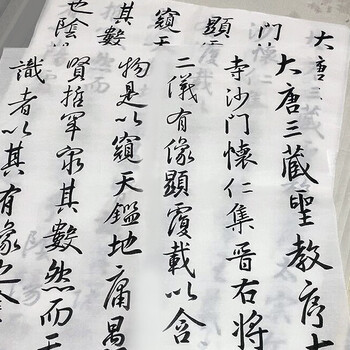 大唐三
門
顯
窺天
其數
也陰
大唐三藏聖教序
寺沙門懷仁集晉右將
二儀有像顯覆載以含
物是以窺天鑑地庸愚
賢哲罕窮其數然而天
識者以其有象也